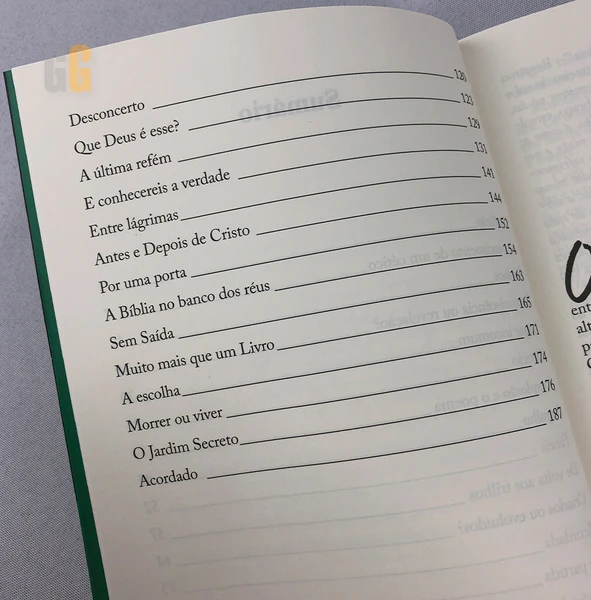 GG
Desconcerto 120
Que Deus é esse? 123
A última refém 129
E conhecereis a verdade 131
Entre lágrimas 141
Antes e Depois de Cristo 144
Por uma porta 152
A Bíblia no banco dos réus 154
Sem Saída 163
Muito mais que um Livro 165
A escolha 171
Morrer ou viver 174
O Jardim Secreto 176
Acordado 187